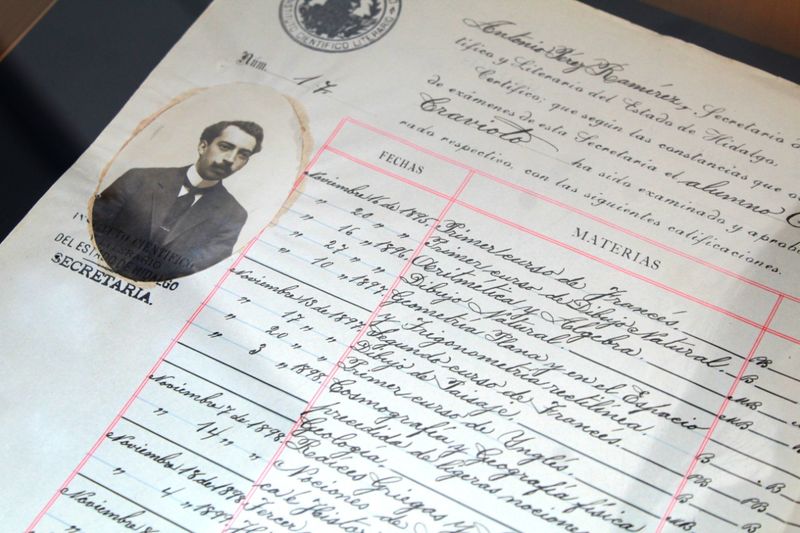 CIENTÍFICO LITERARIO
Núm. 17
Antonio Pérez Ramírez, Secretario d
tífico y Literario del Estado de Hidalgo.
Certifico: que según las constancias que o
de exámenes de esta Secretaría el alumno C
Cravioto ha sido examinado y aprob
rado respectivo, con las siguientes calificaciones.
INSTITUTO CIENTÍFICO
LITERARIO
DEL ESTADO DE HIDALGO
SECRETARIA.
FECHAS
MATERIAS
Noviembre 16 de 1895. Primer curso de Francés. PB
" 20 " " Primer curso de Dibujo Natural. B
" 16 " 1896. Aritmética y Algebra
" 27 " " Dibujo Natural.
" 10 " 1897. Geometría Plana y en el Espacio
y Trigonometría rectilínea.
Noviembre 13 de 1897. Segundo curso de Francés.
" 17 " " Dibujo de Paisage.
" 20 " " Primer curso de Ynglés.
" 3 " 1898. Cosmografía y Geografía física
precedida de ligeras nocione
Noviembre 7 de 1898. Geología.
" 14 " " Raíces Griegas y
Noviembre 18 de 1898 Nociones de
" 4 " 1899
Noviembre
Tercer